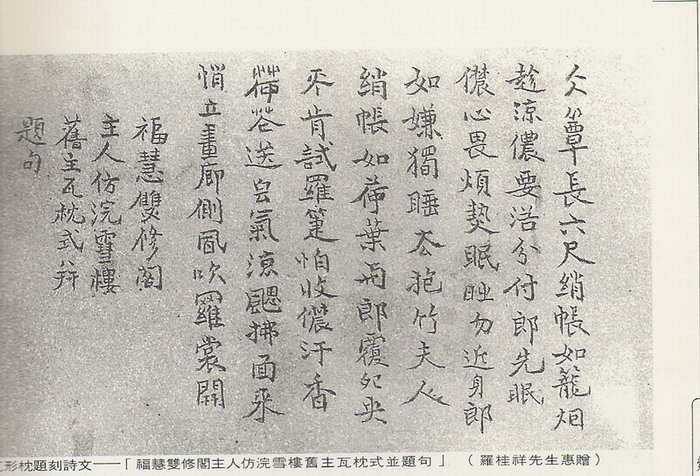 仌簟長六尺綃帳如籠烟
趁涼儂要浴分付郎先眠
儂心畏煩熱眠睡勿近身郎
如嫌獨睡去抱竹夫人
綃帳如荷葉両郎覆夗央
不肯試羅箑怕收儂汗香
荷花送皀氣涼颸拂面來
悄立畫廊側風吹羅裳開
福慧雙修閣
主人仿浣雪樓
舊主瓦枕式并
題句
形枕題刻詩文──「福慧雙修閣主人仿浣雪樓舊主瓦枕式並題句」（羅桂祥先生惠贈）